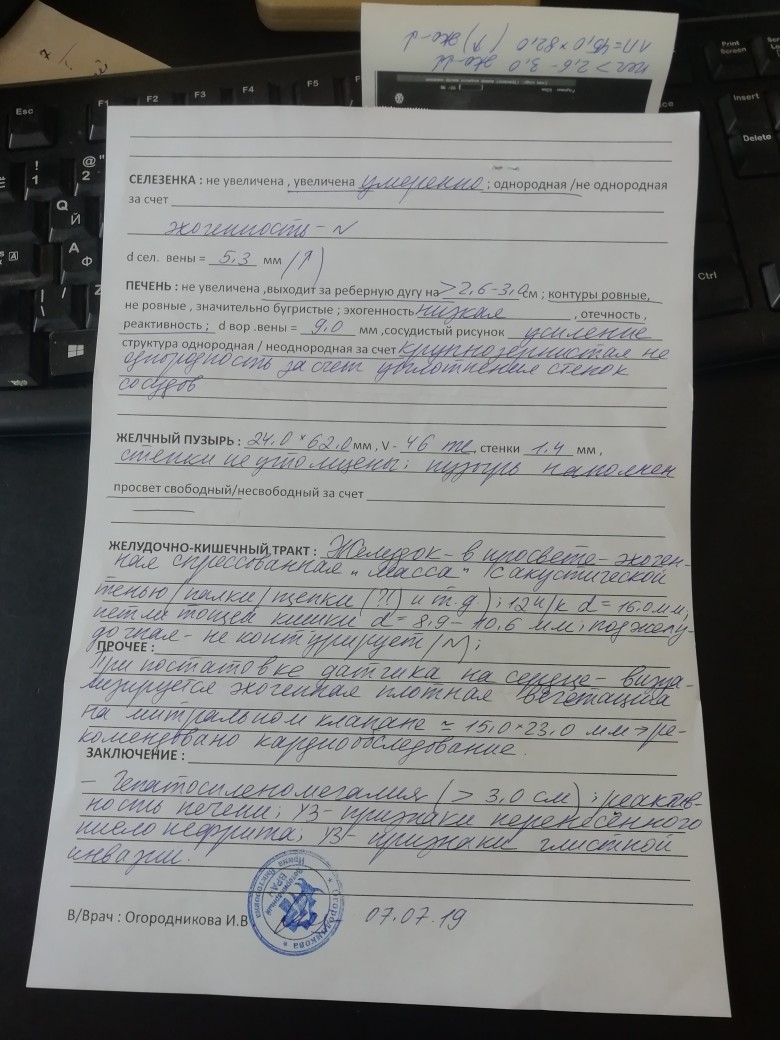 печ > 2,6-3,0 эхо-d
ЛП=45,0×82,0 (↑) эхо-d
Print Screen
Insert
Delete
Esc
F1
F2
F3
F4
F5
!
1
@"
2
Q
Й
A
Ф
Ctrl
СЕЛЕЗЕНКА : не увеличена , увеличена умеренно ; однородная /не однородная
за счет
эхогенность - N
d сел. вены = 5,3 мм (↑)
ПЕЧЕНЬ : не увеличена ,выходит за реберную дугу на >2,6-3,0 см ; контуры ровные,
не ровные , значительно бугристые ; эхогенность низкая , отечность ,
реактивность ; d вор .вены = 9,0 мм ,сосудистый рисунок усиление
структура однородная / неоднородная за счет крупнозернистая не
однородность за счет уплотнения стенок
сосудов
ЖЕЛЧНЫЙ ПУЗЫРЬ : 24,0 × 62,0 мм , V - 46 ml, стенки 1.4 мм ,
стенки не утолщены; пузырь наполнен
просвет свободный/несвободный за счет
ЖЕЛУДОЧНО-КИШЕЧНЫЙ ТРАКТ : Желудок - в просвете - эхоген-
ная спрессованная "масса" /с акустической
тенью/палки/щепки (?!) и т.д.); 12п/к d = 16,0мм;
петли тощей кишки d = 8,9 - 10,6 мм; поджелу-
дочная - не контурирует /N/;
ПРОЧЕЕ :
При постановке датчика на сердце - визуа-
лизируется эхогенная плотная вегетация
на митральном клапане ≈ 15,0×23,0 мм → ре-
комендовано кардиообследование.
ЗАКЛЮЧЕНИЕ :
- Гепатоспленомегалия (> 3,0 см); реактив-
ность печени; УЗ- признаки перенесенного
пиелонефрита; УЗ- признаки глистной
инвазии.
В/Врач : Огородникова И.В
07.07.19
ВРАЧ
Огородникова
Ирина